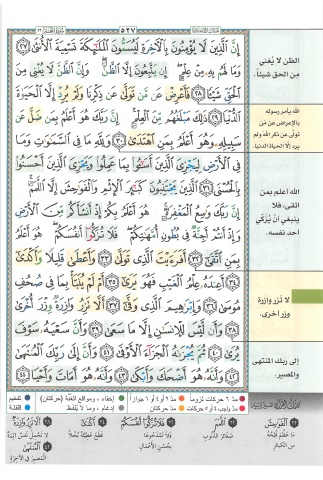 ٥٢٧
إِنَّ ٱلَّذِينَ لَا يُؤْمِنُونَ بِٱلْءَاخِرَةِ لَيُسَمُّونَ ٱلْمَلَٰٓئِكَةَ تَسْمِيَةَ ٱلْأُنثَىٰ ٢٧
وَمَا لَهُم بِهِۦ مِنْ عِلْمٍ إِن يَتَّبِعُونَ إِلَّا ٱلظَّنَّ وَإِنَّ ٱلظَّنَّ لَا يُغْنِى مِنَ
ٱلْحَقِّ شَيْـًٔا ٢٨ فَأَعْرِضْ عَن مَّن تَوَلَّىٰ عَن ذِكْرِنَا وَلَمْ يُرِدْ إِلَّا ٱلْحَيَوٰةَ
ٱلدُّنْيَا ٢٩ ذَٰلِكَ مَبْلَغُهُم مِّنَ ٱلْعِلْمِ إِنَّ رَبَّكَ هُوَ أَعْلَمُ بِمَن ضَلَّ عَن
سَبِيلِهِۦ وَهُوَ أَعْلَمُ بِمَنِ ٱهْتَدَىٰ ٣٠ وَلِلَّهِ مَا فِى ٱلسَّمَٰوَٰتِ وَمَا
فِى ٱلْأَرْضِ لِيَجْزِىَ ٱلَّذِينَ أَسَٰٓـُٔوا۟ بِمَا عَمِلُوا۟ وَيَجْزِىَ ٱلَّذِينَ أَحْسَنُوا۟
بِٱلْحُسْنَى ٣١ ٱلَّذِينَ يَجْتَنِبُونَ كَبَٰٓئِرَ ٱلْإِثْمِ وَٱلْفَوَٰحِشَ إِلَّا ٱللَّمَمَ
إِنَّ رَبَّكَ وَٰسِعُ ٱلْمَغْفِرَةِ هُوَ أَعْلَمُ بِكُمْ إِذْ أَنشَأَكُم مِّنَ ٱلْأَرْضِ
وَإِذْ أَنتُمْ أَجِنَّةٌ فِى بُطُونِ أُمَّهَٰتِكُمْ فَلَا تُزَكُّوٓا۟ أَنفُسَكُمْ هُوَ أَعْلَمُ
بِمَنِ ٱتَّقَىٰٓ ٣٢ أَفَرَءَيْتَ ٱلَّذِى تَوَلَّىٰ ٣٣ وَأَعْطَىٰ قَلِيلًا وَأَكْدَىٰٓ
٣٤ أَعِندَهُۥ عِلْمُ ٱلْغَيْبِ فَهُوَ يَرَىٰٓ ٣٥ أَمْ لَمْ يُنَبَّأْ بِمَا فِى صُحُفِ
مُوسَىٰ ٣٦ وَإِبْرَٰهِيمَ ٱلَّذِى وَفَّىٰٓ ٣٧ أَلَّا تَزِرُ وَازِرَةٌ وِزْرَ أُخْرَىٰ
٣٨ وَأَن لَّيْسَ لِلْإِنسَٰنِ إِلَّا مَا سَعَىٰ ٣٩ وَأَنَّ سَعْيَهُۥ سَوْفَ
يُرَىٰ ٤٠ ثُمَّ يُجْزَىٰهُ ٱلْجَزَآءَ ٱلْأَوْفَىٰ ٤١ وَأَنَّ إِلَىٰ رَبِّكَ ٱلْمُنتَهَىٰ
٤٢ وَأَنَّهُۥ هُوَ أَضْحَكَ وَأَبْكَىٰ ٤٣ وَأَنَّهُۥ هُوَ أَمَاتَ وَأَحْيَا ٤٤
الظن لا يُغني
من الحق شيئاً.
الله يأمر رسوله
بالإعراض عن مَن
تولى عن ذكر الله ولم
يرد إلّا الحياة الدنيا.
الله أعلم بمن
اتقى، فلا
ينبغي أنْ يُزَكي
أحد نفسه.
لا تزر وازرة
وزر أخرى.
إلى ربك المنتهى
والمصير.
مدّ ٦ حركات لزوماً
مدّ ٢ أو ٤ أو ٦ جوازاً
إخفاء، ومواقع الغُنّة (حركتان)
تفخيم
مدّ واجب ٤ أو ٥ حركات
مدّ حركتان
إدغام، وما لا يُلفَظ
قلقلة